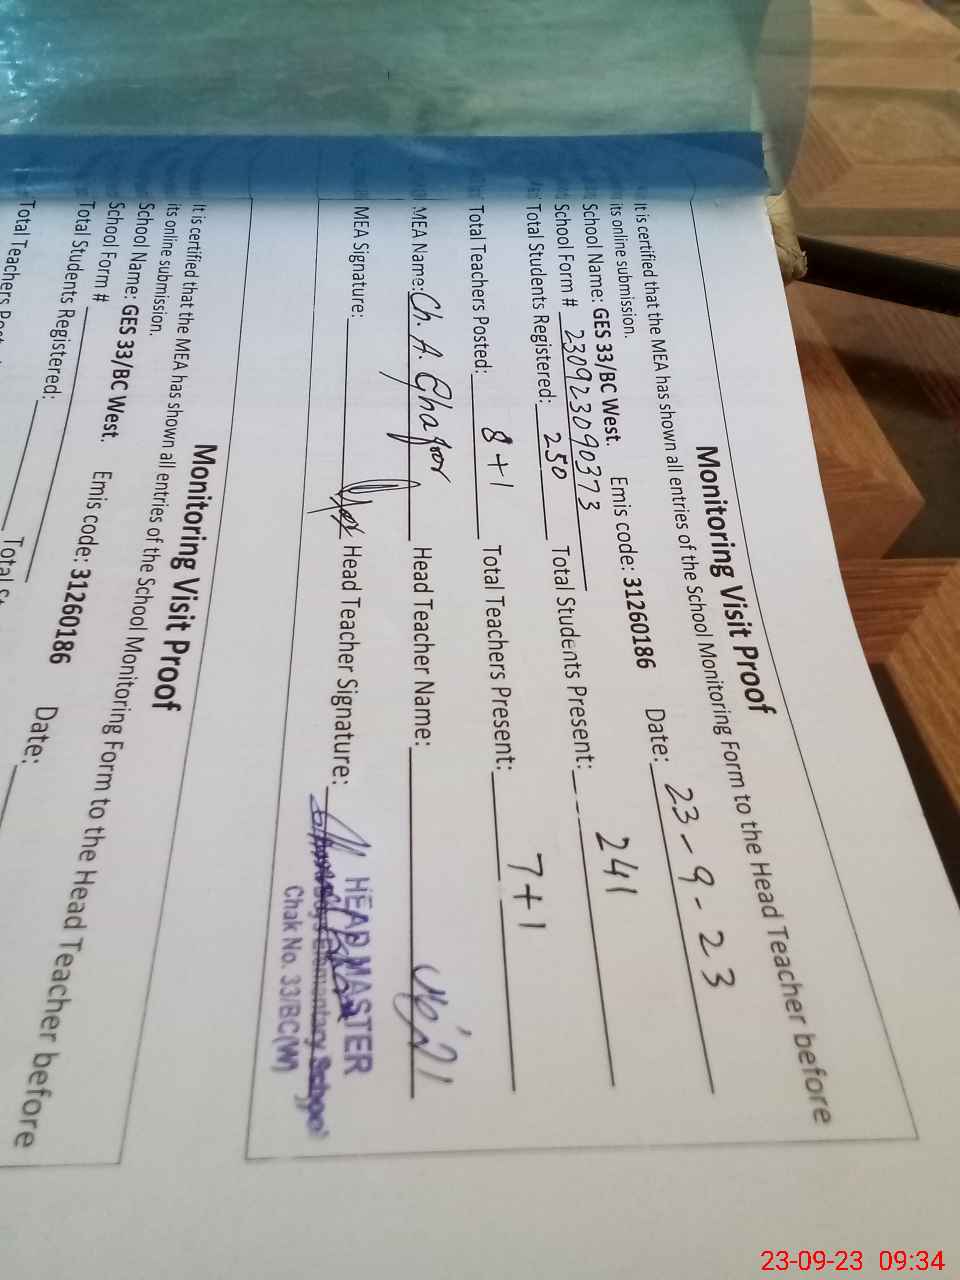 Monitoring Visit Proof
It is certified that the MEA has shown all entries of the School Monitoring Form to the Head Teacher before
its online submission.
School Name: GES 33/BC West. Emis code: 31260186 Date: 23-9-23
School Form # 230923090373
Total Students Registered: 250 Total Students Present: 241
Total Teachers Posted: 8+1 Total Teachers Present: 7+1
MEA Name: Ch. A. Ghafoor Head Teacher Name:
MEA Signature: Head Teacher Signature:
HEAD MASTER
Elementary School
Chak No. 33/BC(W)
Monitoring Visit Proof
It is certified that the MEA has shown all entries of the School Monitoring Form to the Head Teacher before
its online submission.
School Name: GES 33/BC West. Emis code: 31260186 Date:
School Form #
Total Students Registered:
Total Teachers
23-09-23 09:34